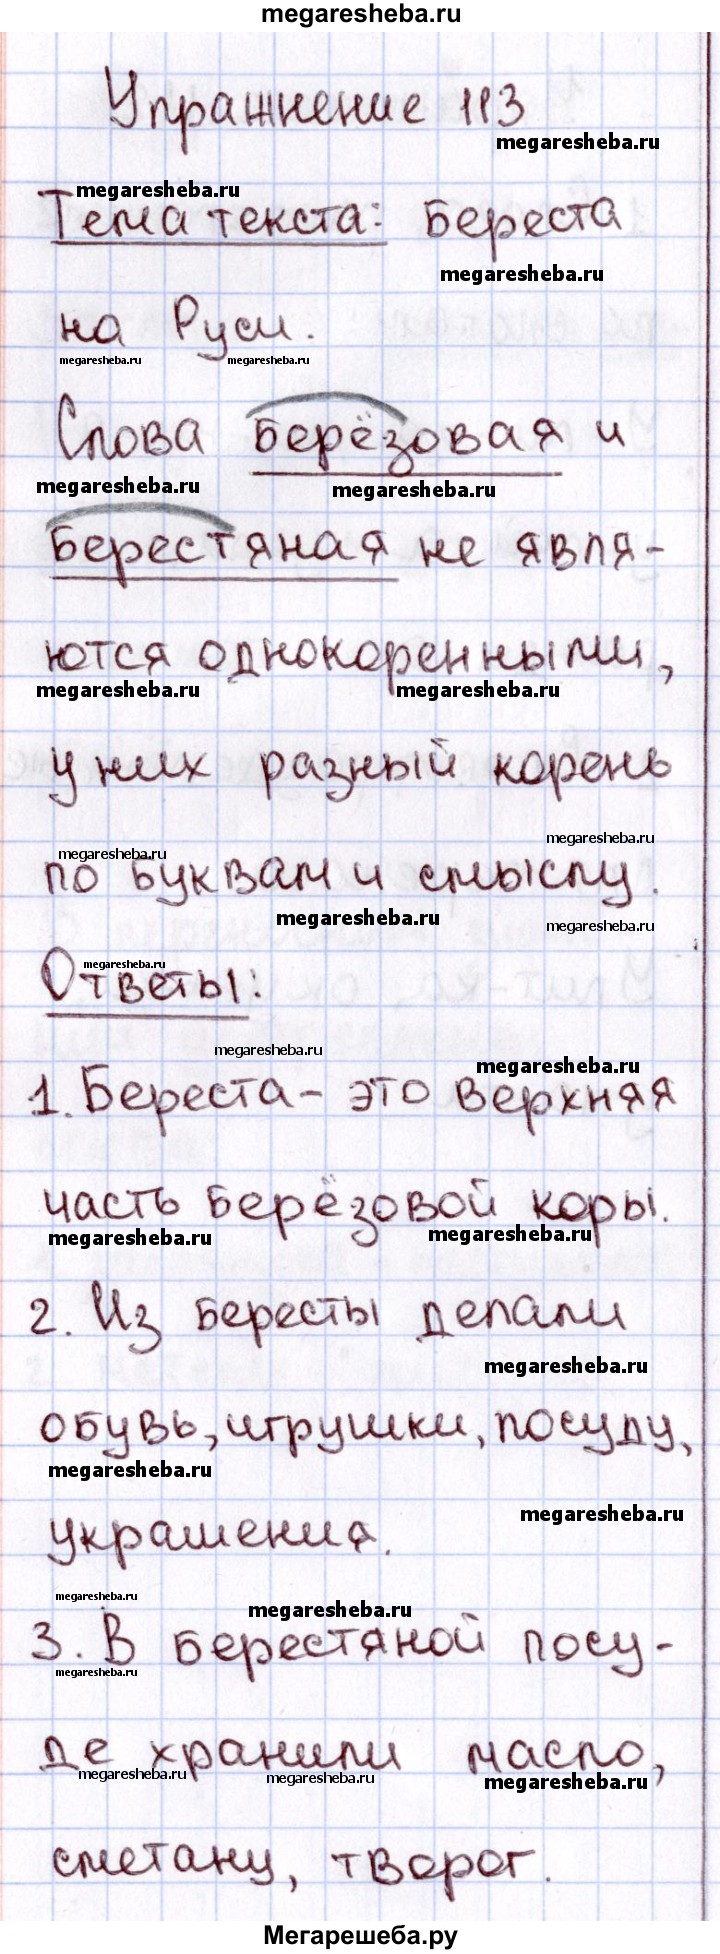 megaresheba.ru
Упражнение 113
megaresheba.ru
megaresheba.ru
Тема текста: Береста
megaresheba.ru
на Руси.
megaresheba.ru megaresheba.ru
Слова берёзовая и
megaresheba.ru megaresheba.ru
берестяная не явля-
ются однокоренными,
megaresheba.ru megaresheba.ru
у них разный корень
megaresheba.ru megaresheba.ru
по буквам и смыслу.
megaresheba.ru megaresheba.ru
megaresheba.ru
Ответы:
megaresheba.ru megaresheba.ru
1. Береста - это верхняя
часть берёзовой коры.
megaresheba.ru megaresheba.ru
2. Из бересты делали
megaresheba.ru
обувь, игрушки, посуду,
megaresheba.ru megaresheba.ru
украшения.
megaresheba.ru megaresheba.ru
3. В берестяной посу-
megaresheba.ru
де хранили масло,
megaresheba.ru megaresheba.ru megaresheba.ru
сметану, творог.
Мегарешеба.ру